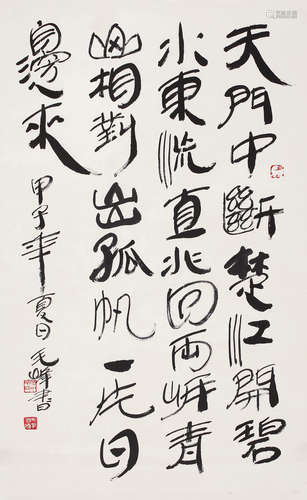 天門中斷楚江開碧
水東流直北回兩岸青
山相對出孤帆一片日
邊來
甲子年夏日毛峰書